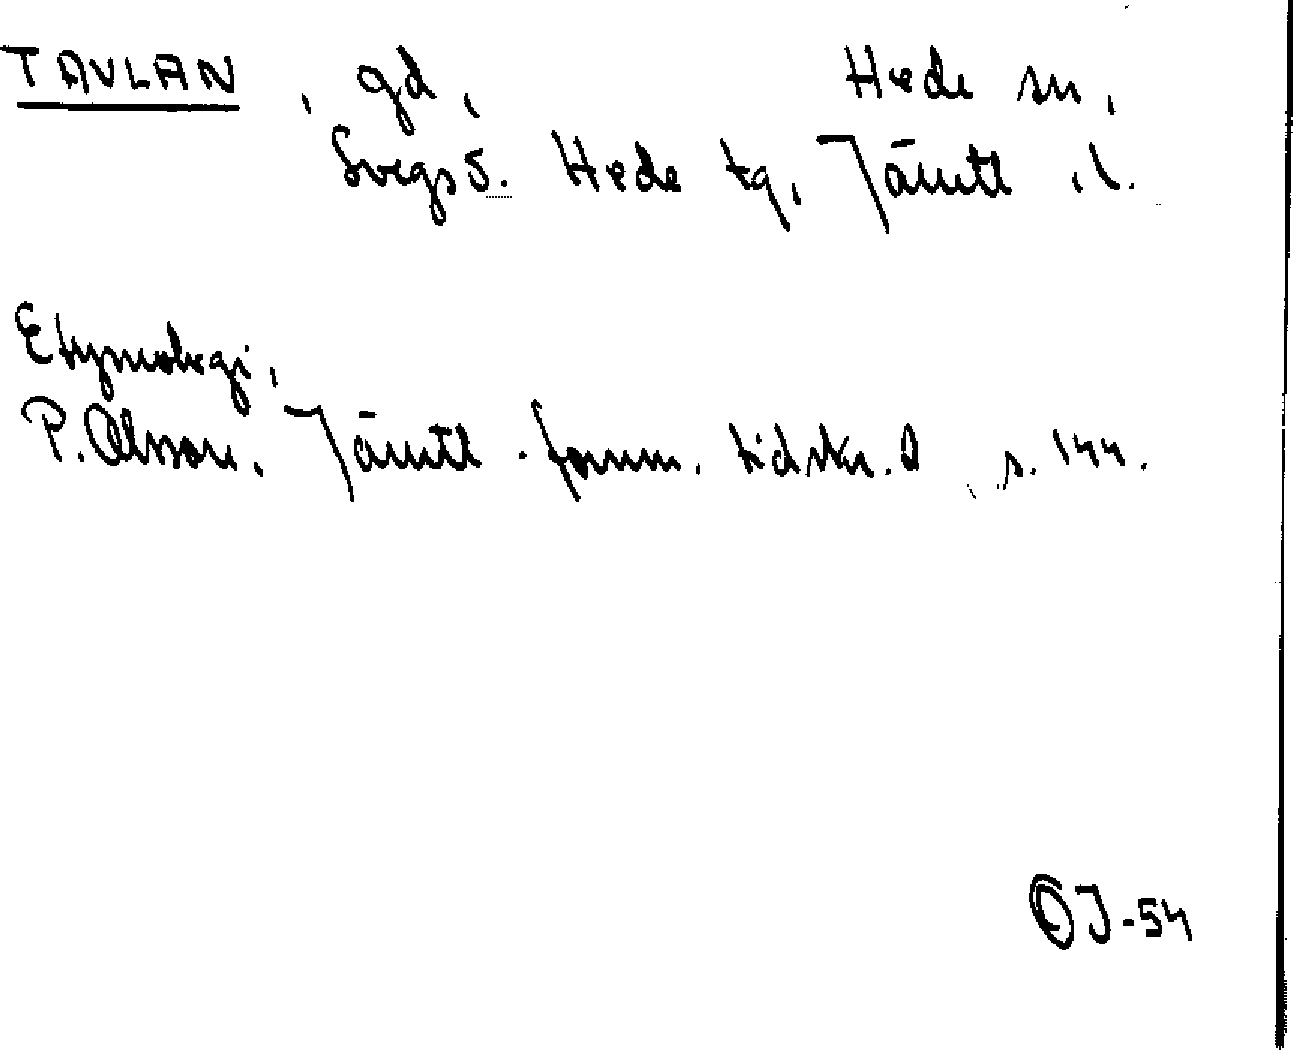 TAVLAN, gd, Hede sn,
Svegs S. Hede tg, Jämtl. l.
Etymologi,
P. Olsson, Jämtl. fornm. tidskr. 2, s. 144.
OJ-54